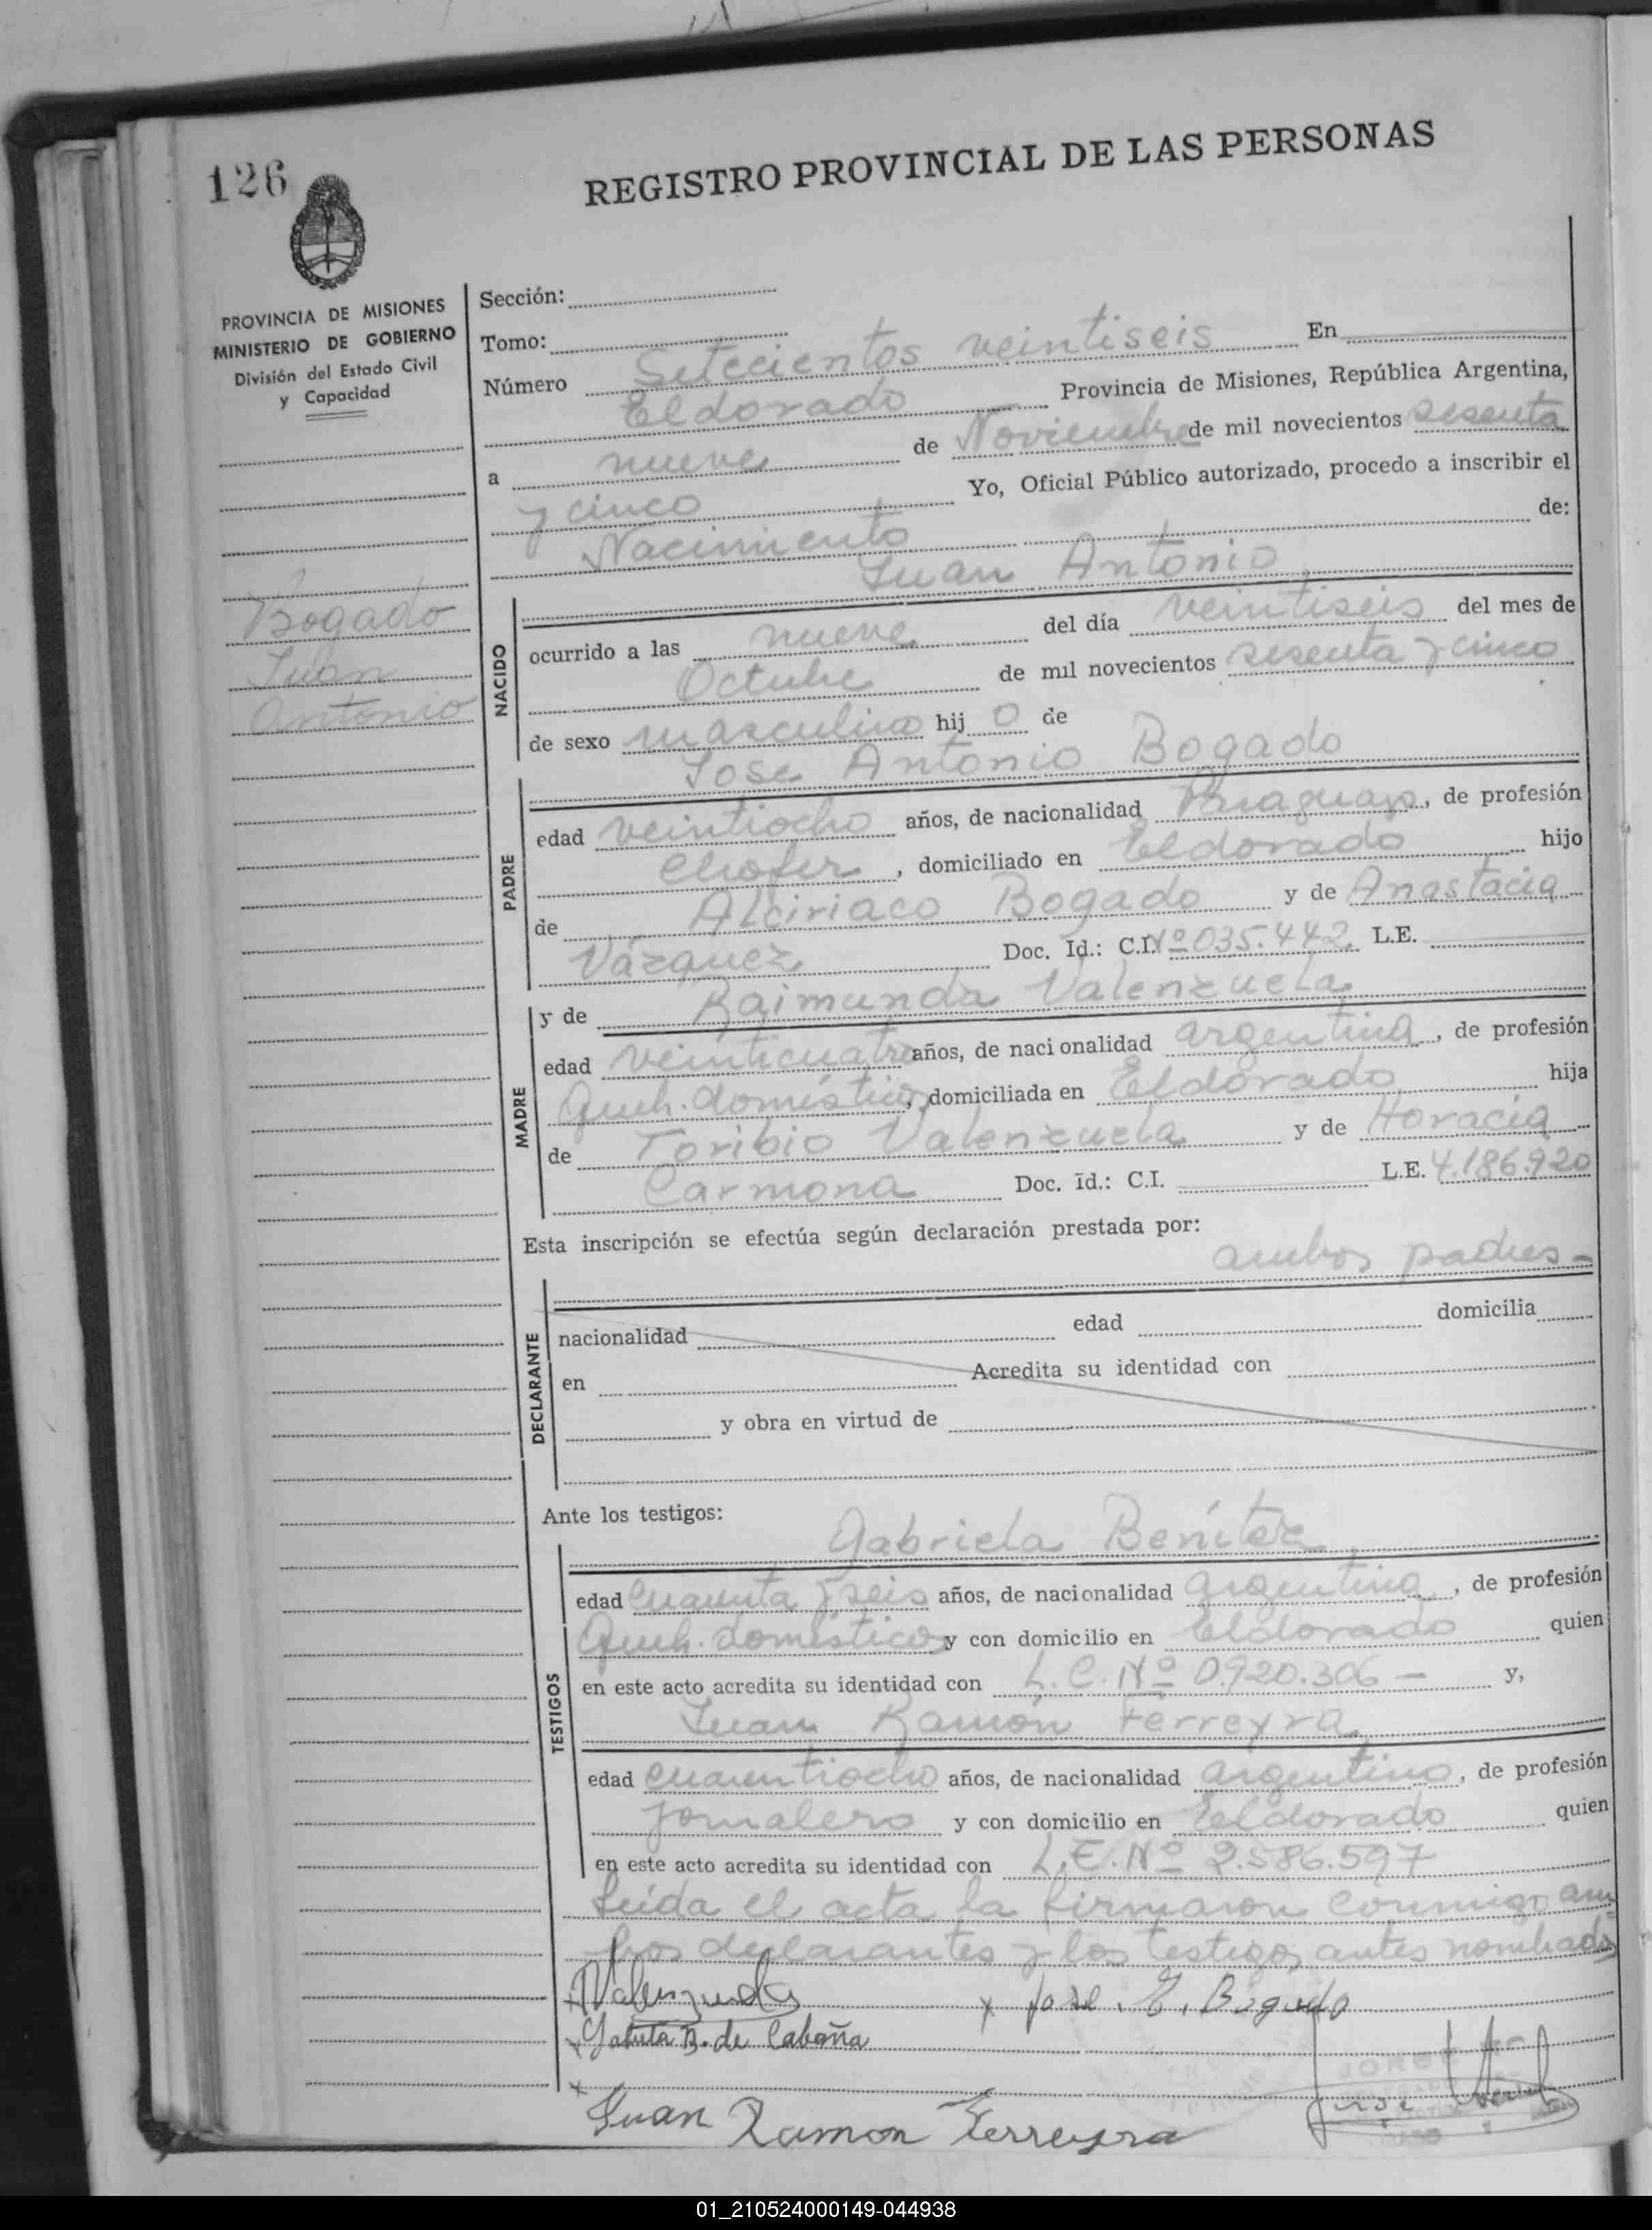 126
REGISTRO PROVINCIAL DE LAS PERSONAS
PROVINCIA DE MISIONES
MINISTERIO DE GOBIERNO
División del Estado Civil
y Capacidad
Bogado
Juan
Antonio
Sección:
Tomo:
Número Setecientos veintiseis En
Eldorado Provincia de Misiones, República Argentina,
a nueve de Noviembre de mil novecientos sesenta
y cinco Yo, Oficial Público autorizado, procedo a inscribir el
Nacimiento de:
Juan Antonio
NACIDO
ocurrido a las nueve del día veintiseis del mes de
Octubre de mil novecientos sesenta y cinco
de sexo masculino hij o de
Jose Antonio Bogado
PADRE
edad veintiocho años, de nacionalidad , de profesión
chofer , domiciliado en Eldorado hijo
de Alciriaco Bogado y de Anastacia
Vázquez Doc. Id.: C.I. Nº 035.442 L.E.
y de Raimunda Valenzuela
MADRE
edad veinticuatro años, de nacionalidad argentina , de profesión
Queh. domésticos, domiciliada en Eldorado hija
de Toribio Valenzuela y de Horacia
Carmona Doc. id.: C.I. L.E. 4.186.920
Esta inscripción se efectúa según declaración prestada por:
ambos padres -
DECLARANTE
nacionalidad edad domicilia
en Acredita su identidad con
y obra en virtud de
Ante los testigos:
Gabriela Benítez
TESTIGOS
edad cuarenta y seis años, de nacionalidad argentina , de profesión
Queh. domésticos y con domicilio en Eldorado quien
en este acto acredita su identidad con L.C. Nº 0.920.306 - y,
Juan Ramón Ferreyra
edad cuarentiocho años, de nacionalidad argentino , de profesión
jornalero y con domicilio en Eldorado quien
en este acto acredita su identidad con L.E. Nº 2.586.597
Leída el acta la firmaron conmigo am
bos declarantes y los testigos antes nombrados
x Valenzuela x Jose . Bogado
x B. de Cabaña
x
Juan Ramon Ferreyra
01_210524000149-044938